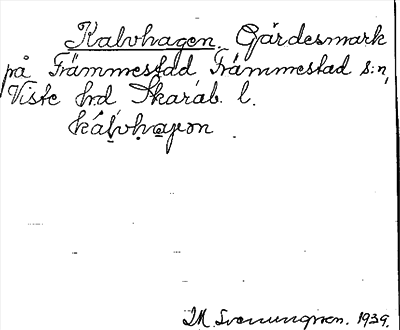 Kalvhagen. Gärdesmark
på Främmestad, Främmestad s:n,
Viste hrd Skarab. l.
kálvhaγən.
M. Svenungsson. 1939.